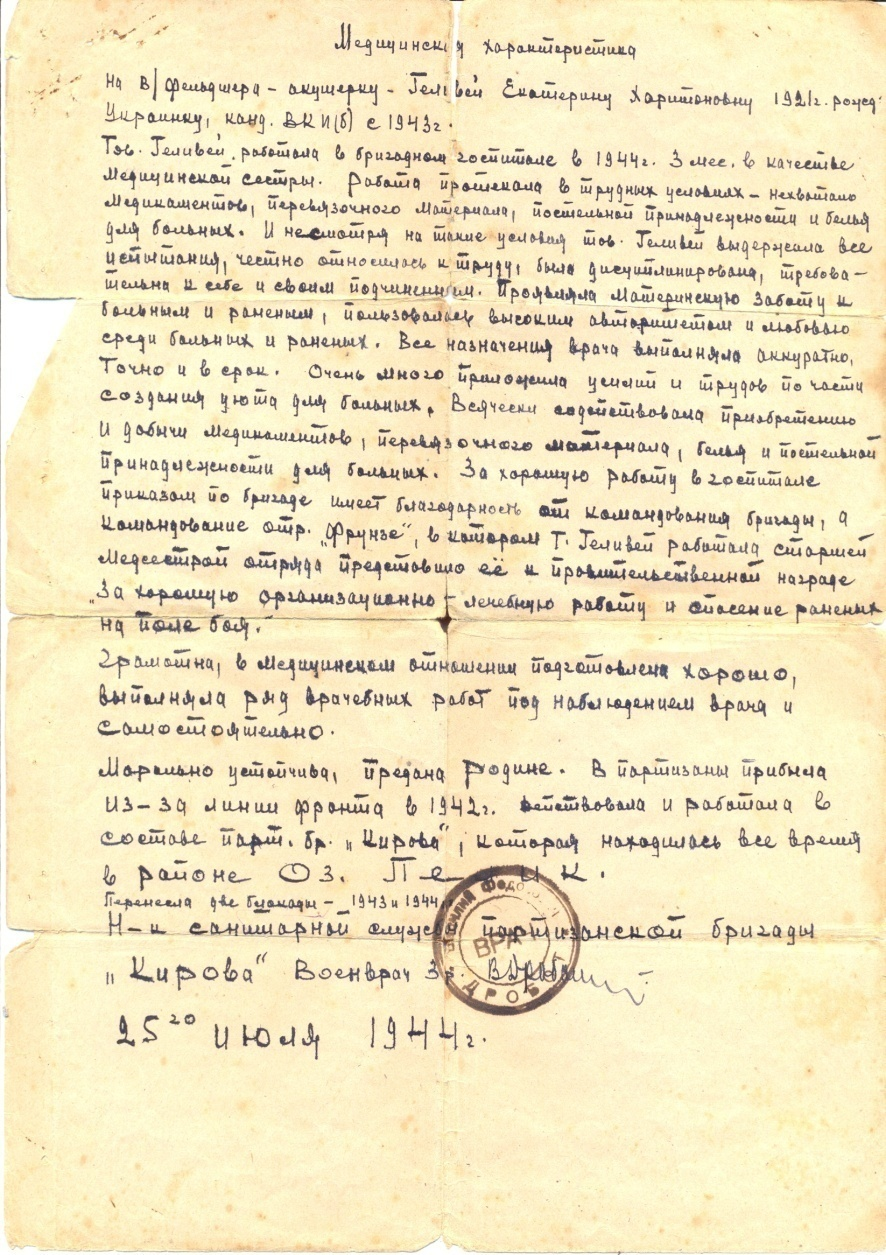 Медицинская характеристика
на в/фельдшера – акушерку – Геливей Екатерину Харитоновну 1921г. рожд.
Украинку, канд. ВКП(б) с 1943г.
Тов. Геливей работала в бригадном госпитале в 1944г. 3 мес. в качестве
Медицинской сестры. Работа протекала в трудных условиях – нехватало
Медикаментов, перевязочного материала, постельной принадлежности и белья
для больных. И несмотря на такие условия тов. Геливей выдержала все
испытания, честно относилась к труду, была дисциплинирована, требова-
тельна к себе и своим подчиненным. Проявляла Материнскую заботу к
больным и раненым, пользовалась высоким авторитетом и любовью
среди больных и раненых. Все назначения врача выполняла аккуратно,
Точно и в срок. Очень много приложила усилий и трудов по части
создания уюта для больных. Всячески содействовала приобретению
и добычи медикаментов, перевязочного материала, белья и постельной
принадлежности для больных. За хорошую работу в госпитале
приказом по бригаде имеет благодарность от командования бригады, а
командование отр. „Фрунзе“, в котором Т. Геливей работала старшей
Медсестрой отряда представило её к правительственной награде
„За хорошую организационно – лечебную работу и спасение раненых
на поле боя.“
Грамотна, в медицинском отношении подготовлена хорошо,
выполняла ряд врачебных работ под наблюдением врача и
самостоятельно.
Морально устойчива, предана Родине. В партизаны прибыла
из-за линии фронта в 1942г. действовала и работала в
составе парт. бр. „Кирова“, которая находилась все время
в районе Оз.
Перенесла две блокады – 1943 и 1944г.
Н-к санитарной службы партизанской бригады
„Кирова“ Военврач 3 р.
25 20 июля 1944г.
ВРАЧ
ДРОБ